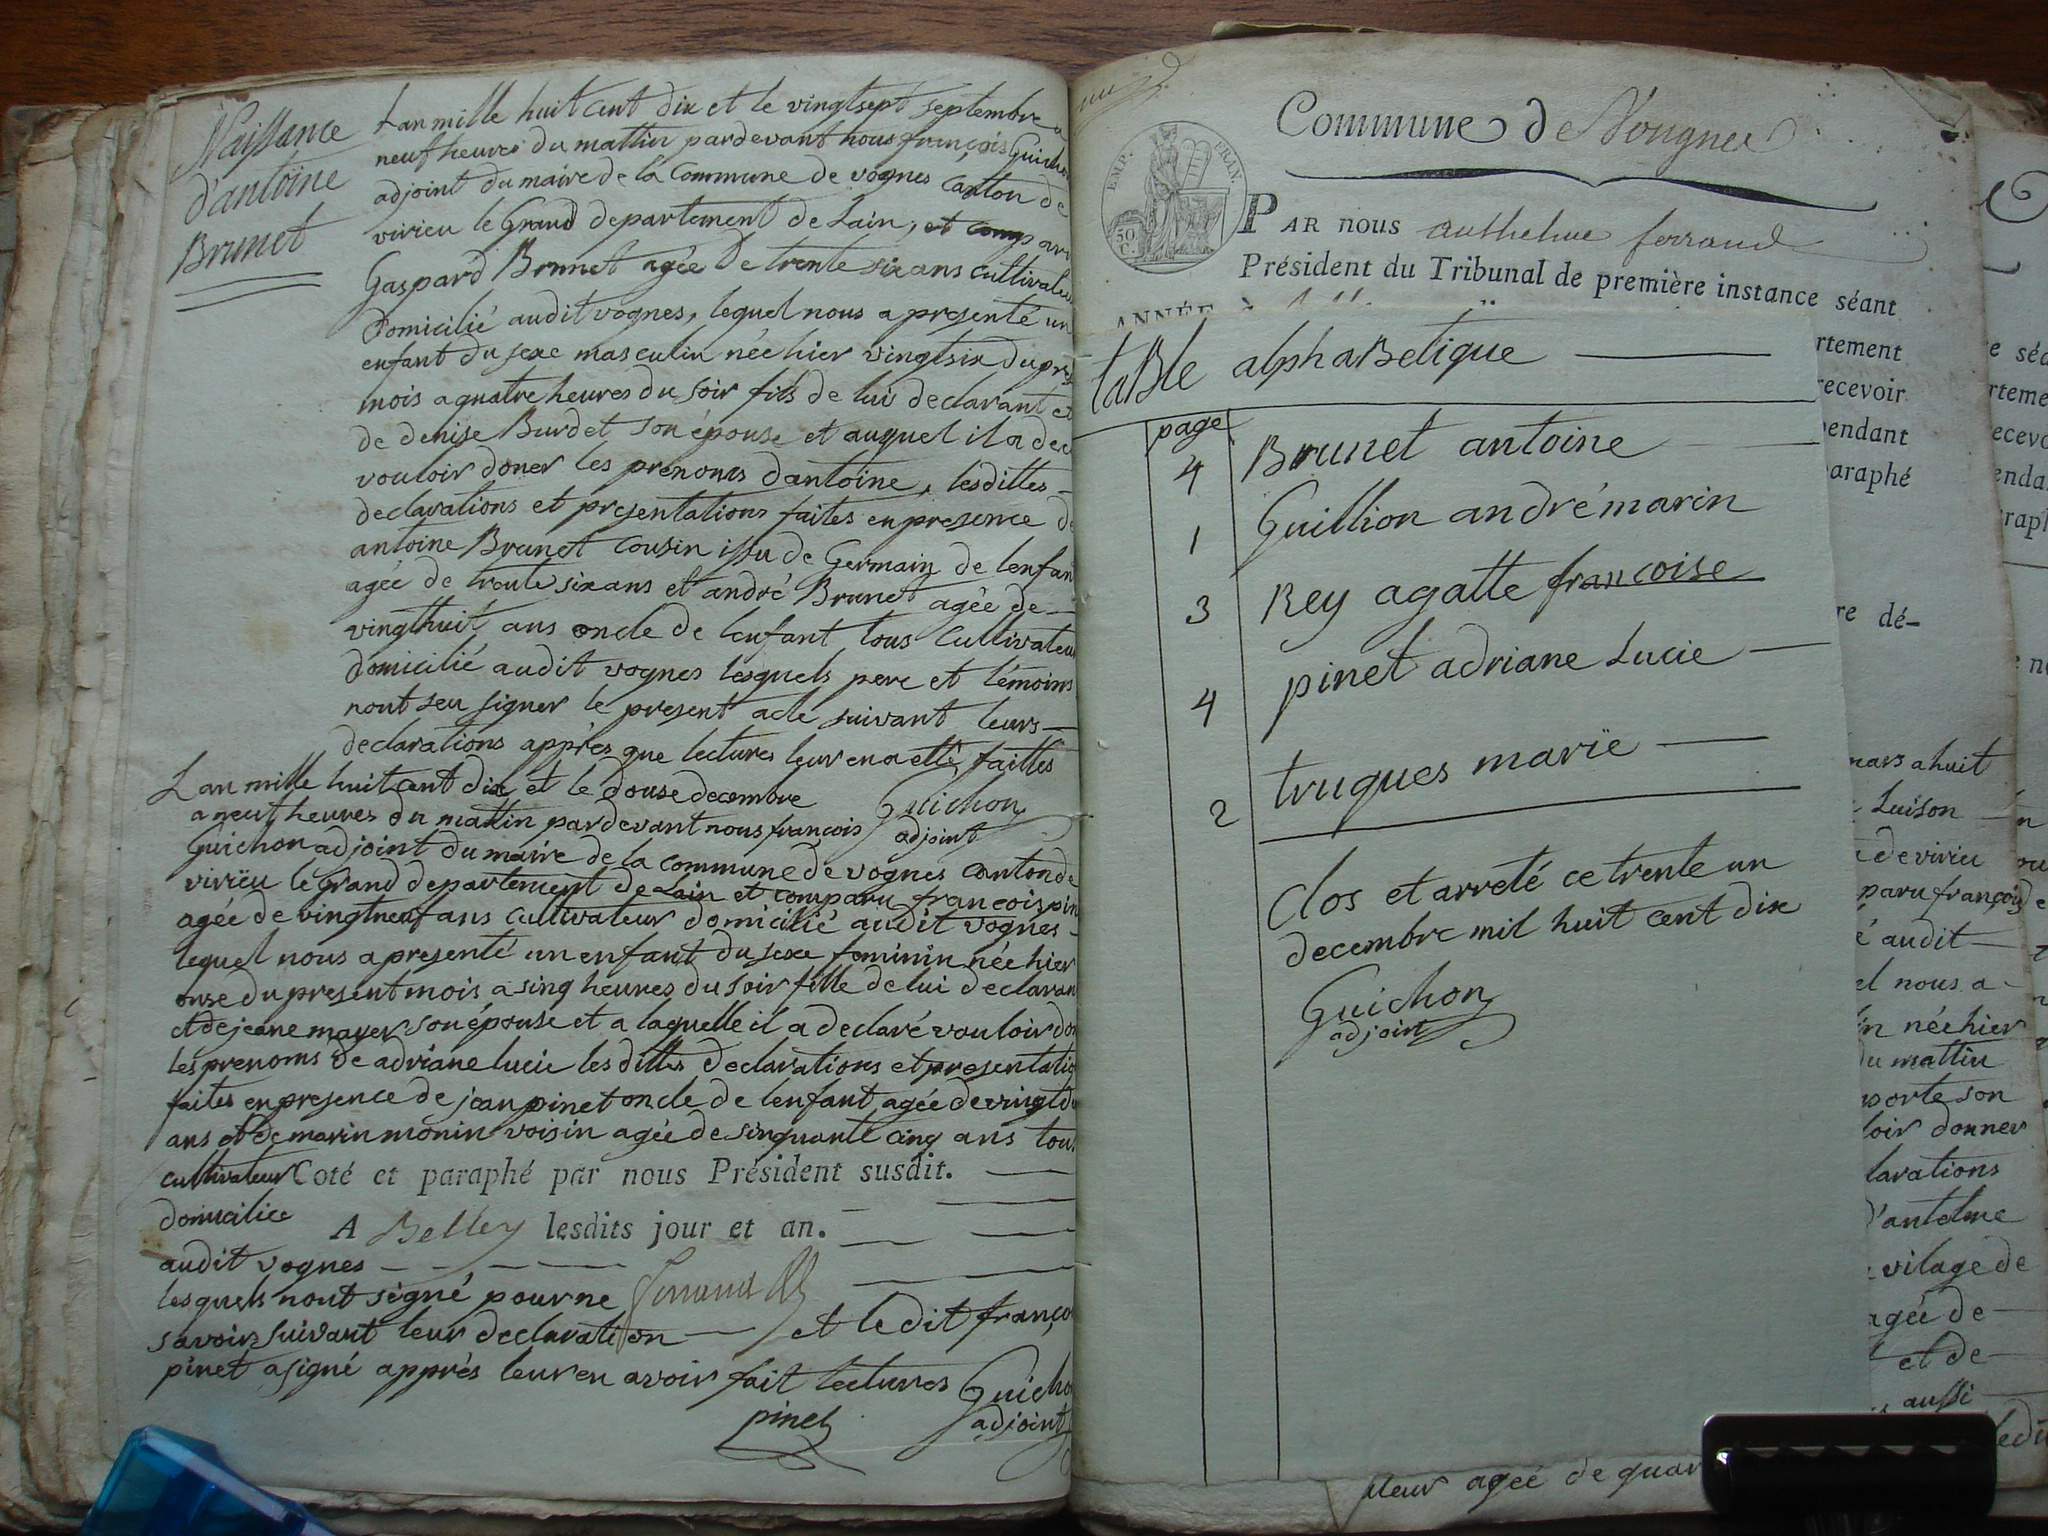 Naissance
d'antoine
Brunet
Lan mille huit cent dix et le vingtsept septembre a
neuf heures du mattin pardevant nous françois Guichon
adjoint du maire de la Commune de vognes Canton de
virieu le Grand departement de Lain, et comparu
Gaspard Brunet agée De trente six ans cultivateur
Domicilié audit vognes, lequel nous a presenté un
enfant du sexe masculin née hier vingtsix du pres
mois a quatre heures du soir fils de lui declarant et
de denise Burdet son épouse et auquel il a dec
vouloir doner les prenoms d'antoine, lesdittes
declarations et presentations faites en presence de
antoine Brunet cousin issu de Germain de lenfan
agée de trente six ans et andré Brunet agée de
vingthuit ans oncle de lenfant tous Cultivateur
domicilié audit vognes lesquels pere et témoins
nont seu signer le present acte suivant leurs
declarations apprès que lectures leur en a etté faittes
Guichon
adjoint
L an mille huit cent dix et le douse decembre
a neuf heures du mattin pardevant nous françois
Guichon adjoint du maire de la commune de vognes canton de
virieu le Grand departement de Lain et comparu françois pin
agée de vingtneuf ans cultivateur domicilié audit vognes
lequel nous a presenté un enfant du sexe feminin née hier
onse du present mois a sinq heures du soir fille de lui declaran
et de jeane mayer son épouse et a laquelle il a declaré vouloir don
les prenoms de adriane lucie les dittes declarations et presentatio
faites en presence de jean pinet oncle de lenfant agée de vingt d
ans et de marin monin voisin agée de sinquante cinq ans tous
cultivateur Coté et paraphé par nous Président susdit.
domicilice A Belley lesdits jour et an.
audit vognes
lesquels nont signé pour ne
savoir suivant leur declaration et ledit franço
pinet a signé apprès leur en avoir fait lectures
pinet
Guicho
adjoint
Commune de Vougnes
EMP. FRAN.
50 C.
PAR nous anthelme ferrand
Président du Tribunal de première instance séant
ANNÉE
taBle alphaBetique
page
4 Brunet antoine
1 Guillion andré marin
3 Rey agatte francoise
4 pinet adriane Lucie
2 truques marie
Clos et arreté ce trente un
decembre mil huit cent dix
Guichon
adjoint
rtement
recevoir
pendant
paraphé
re dé-
mars a huit
Luison
de virieu
paru françois
é audit
el nous a
in née hier
du mattin
porte son
loir donner
larations
d'antelme
vilage de
agée de
et de
aussi
ateur ageé de quar